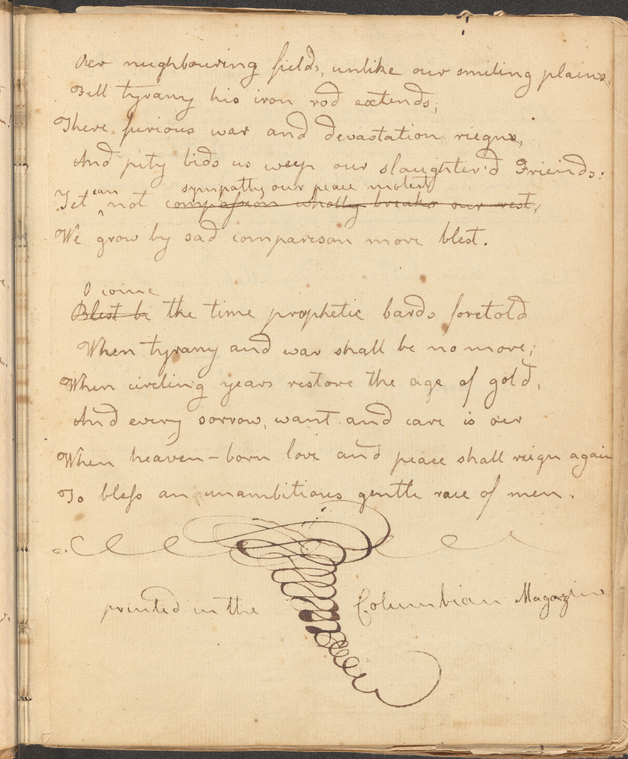 Oer neighbouring fields, unlike our smiling plains,
Still tyrany his iron rod extends,
There furious war and devastation riegns,
And pity bids us weep our slaughter'd Friends:
can sympathy our peace molest
Yet ^ not compassion wholly breaks our rest,
We grow by sad comparison more blest.
O come
Blest be the time prophetic bards foretold
When tyrany and war shall be no more;
When circling years restore the age of gold,
And every sorrow, want and care is oer
When heaven-born love and peace shall reign again
To bless an unambitious gentle race of men.
printed in the Columbian Magazine